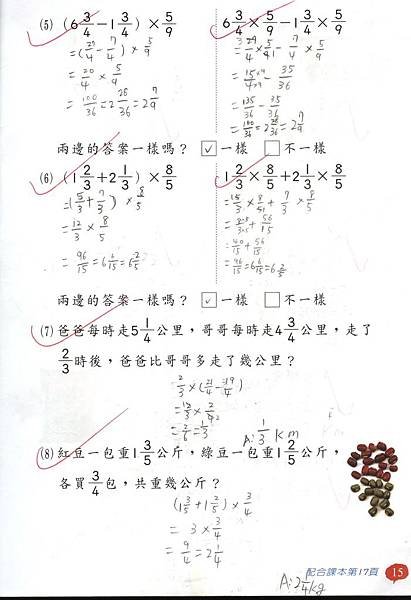 (5) (6 3/4 － 1 3/4) × 5/9
= (27/4 － 7/4) × 5/9
= 20/4 × 5/9
= 100/36 = 2 28/36 = 2 7/9
6 3/4 × 5/9 － 1 3/4 × 5/9
= 15×9/4×9 － 35/36
= 135/36 － 35/36
= 100/36 = 2 28/36 = 2 7/9
兩邊的答案一樣嗎？ ☑一樣 □不一樣
(6) (1 2/3 ＋ 2 1/3) × 8/5
= (5/3 + 7/3) × 8/5
= 12/3 × 8/5
= 96/15 = 6 6/15 = 6 2/5
1 2/3 × 8/5 ＋ 2 1/3 × 8/5
= 40/15 + 56/15
= 96/15 = 6 6/15 = 6 2/5
兩邊的答案一樣嗎？ ☑一樣 □不一樣
(7) 爸爸每時走5 1/4公里，哥哥每時走4 3/4公里，走了
2/3時後，爸爸比哥哥多走了幾公里？
2/3 × (21/4 － 19/4)
= 2/6 = 1/3
A: 1/3 km
(8) 紅豆一包重1 3/5公斤，綠豆一包重1 2/5公斤，
各買3/4包，共重幾公斤？
(1 3/5 + 1 2/5) × 3/4
= 3 × 3/4
= 9/4 = 2 1/4
配合課本第17頁 15
A: 2 1/4 kg